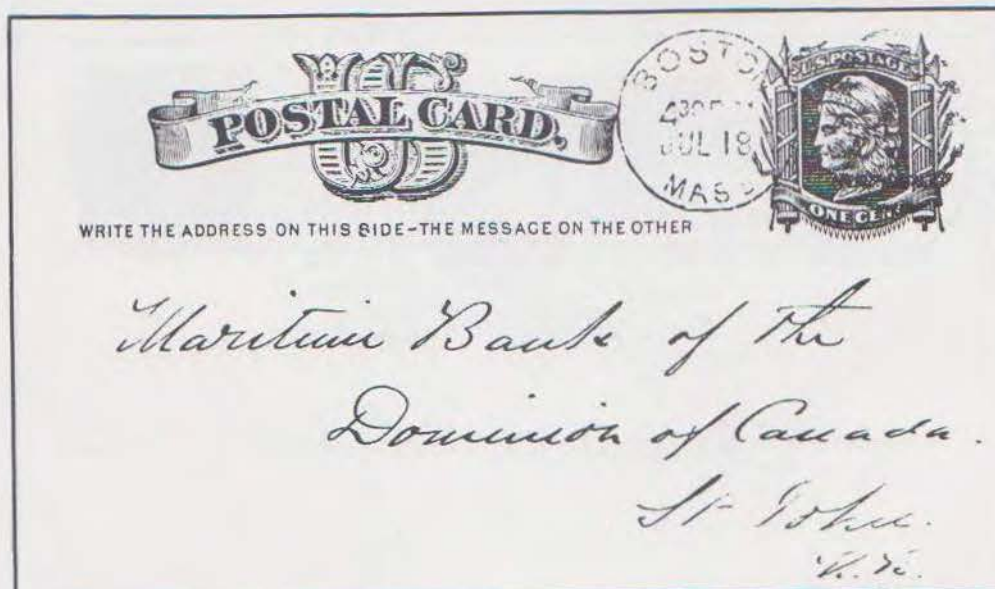 US
POSTAL CARD.
BOSTON
JUL 18
MASS
U.S. POSTAGE
ONE CENT
WRITE THE ADDRESS ON THIS SIDE-THE MESSAGE ON THE OTHER
Maritime Bank of the
Dominion of Canada.
St John.
N.B.